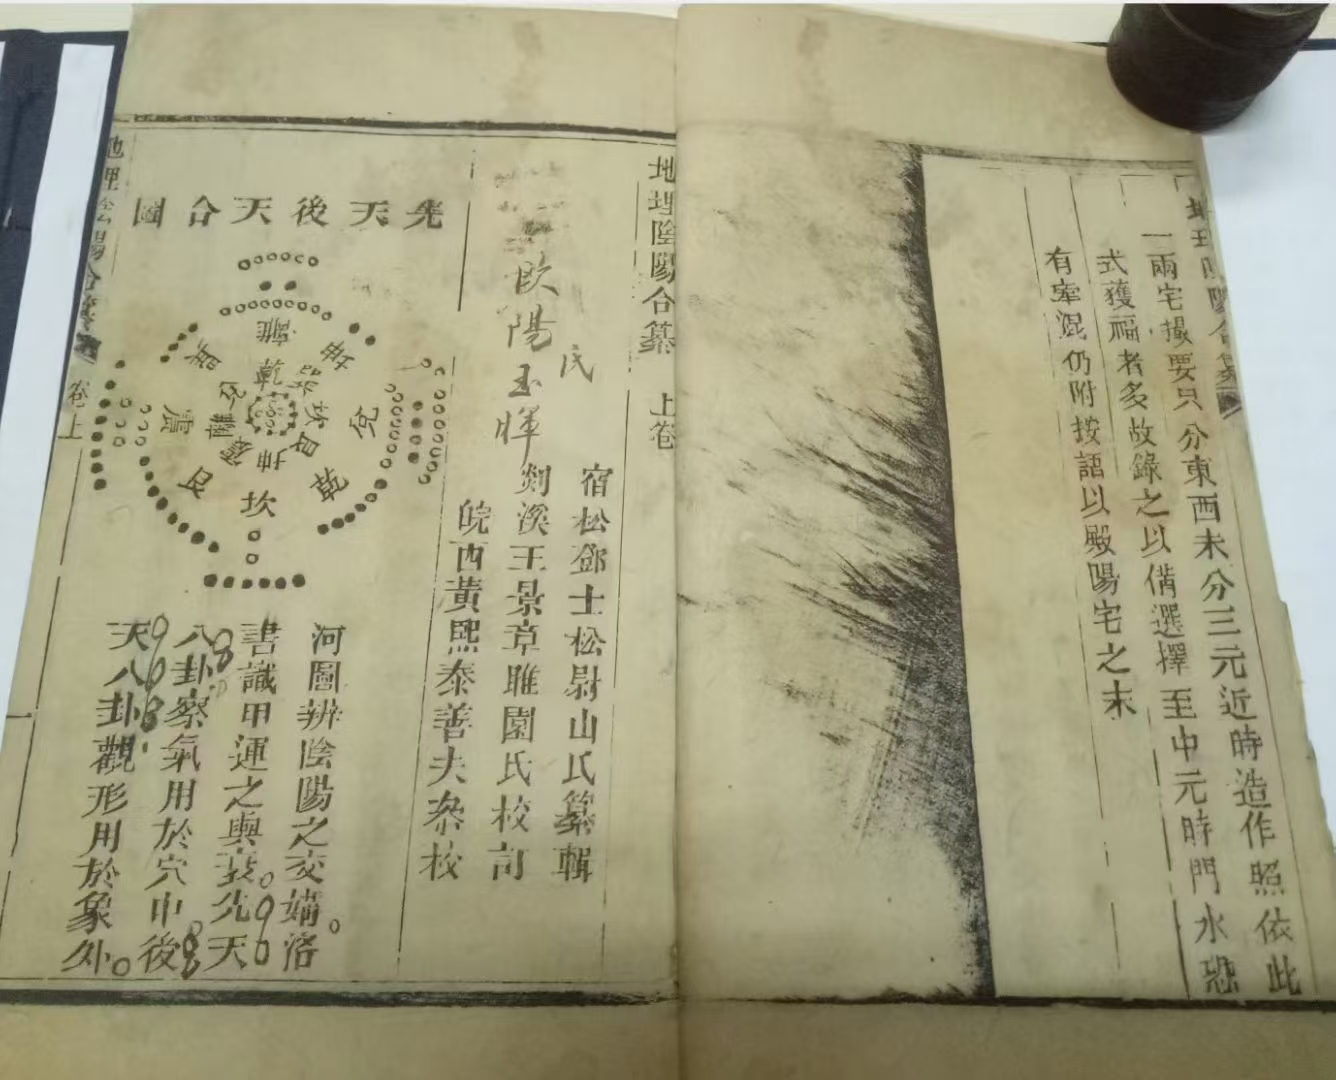 一兩宅撮要只分東西未分三元近時造作照依此
式獲福者多故錄之以備選擇至中元時門水
有牽混仍附按語以殿陽宅之末
地理陰陽合纂 上卷
宿松鄧士松尉山氏纂輯
剡溪王景章雎園氏校訂
皖西黃熙泰善夫叅校
歐陽玉暉
氏
先天後天合圖
離
坤
兌
乾
坎
艮
震
巽
乾
巽
坎
艮
坤
震
離
兌
河圖辨陰陽之交媾洛
書識甲運之興衰先天
八卦察氣用於穴中後
天八卦觀形用於象外
地理陰陽合纂 卷上
一